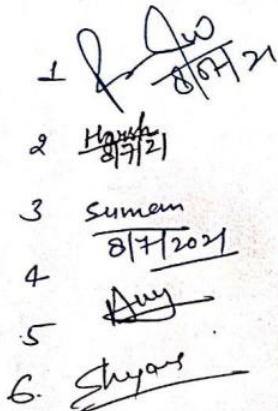 1
8/07/21
2 Harsh
8/7/21
3 Suman
8/7/2021
4
5
6. Shyam